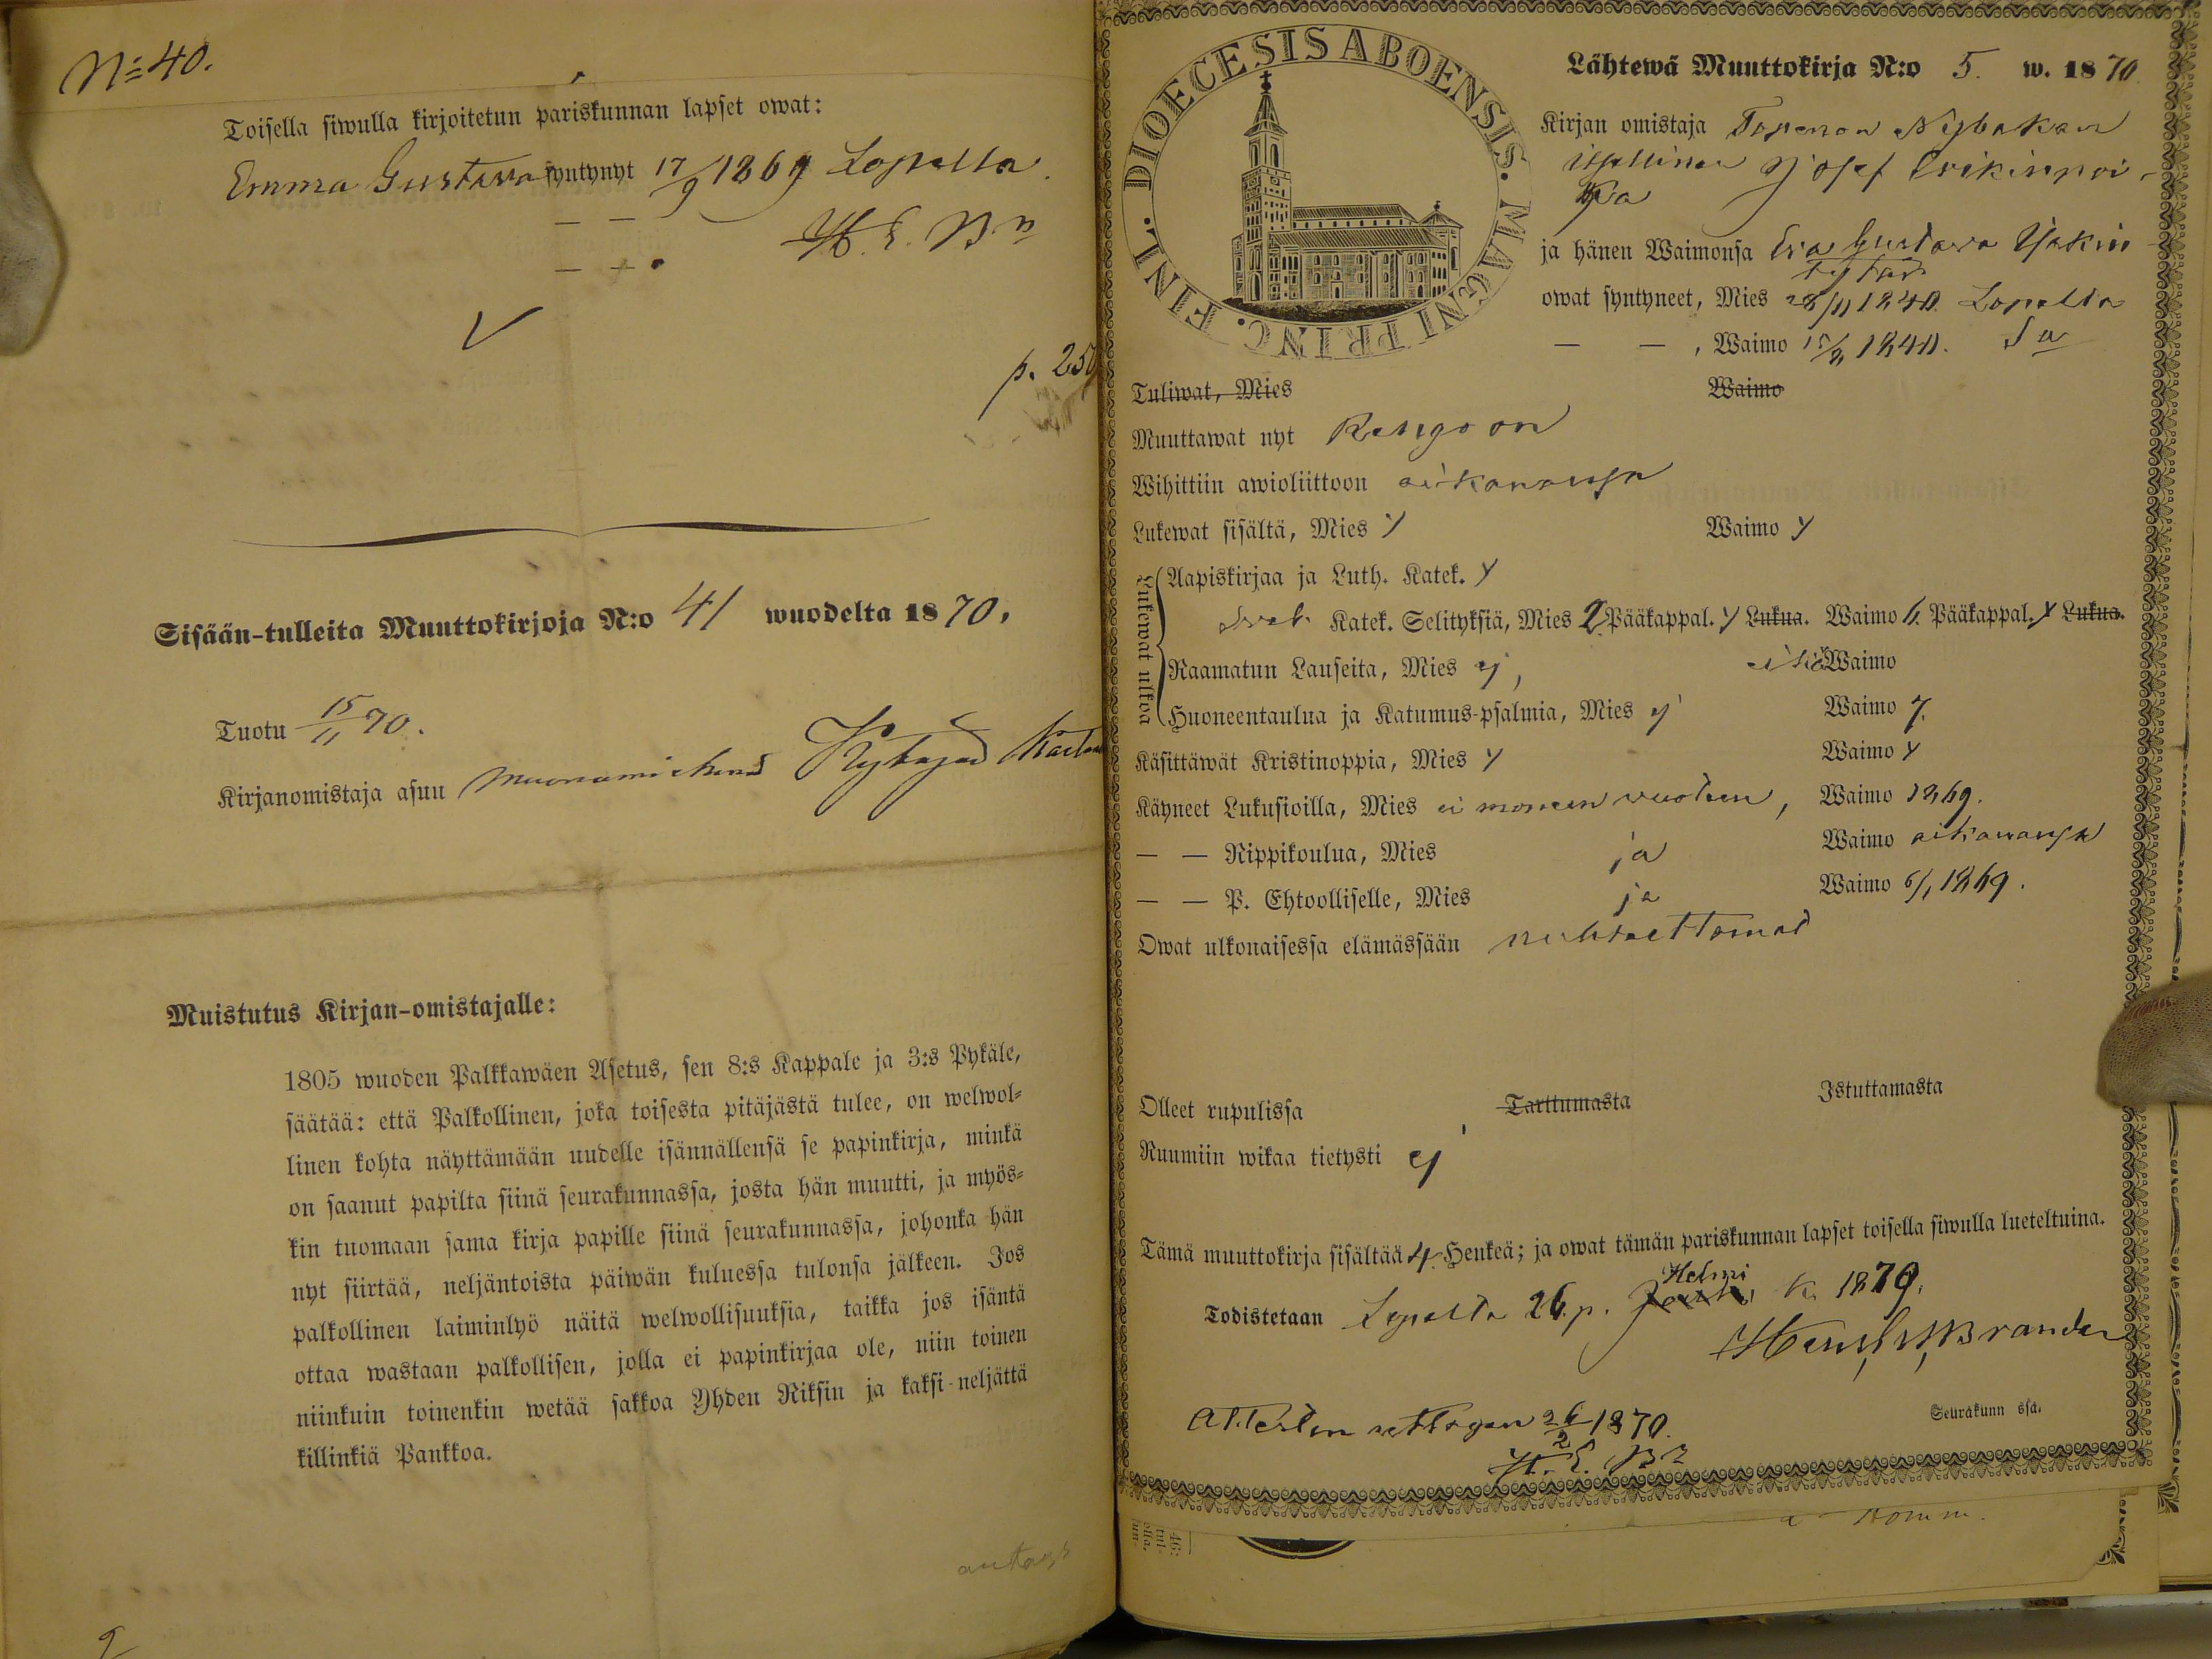 No 40.
Toisella siwulla kirjoitetun pariskunnan lapset owat:
Emma Gustava syntynyt 17/9 1869 Lopella.
— — H. E. Bn
— —
p. 259
Sisään-tulleita Muuttokirjoja N:o 41 wuodelta 1870.
Tuotu 15/11 70.
Kirjanomistaja asuu
Muistutus Kirjan-omistajalle:
1805 wuoden Palkkawäen Asetus, sen 8:s Kappale ja 3:s Pykäle,
säätää: että Palkollinen, joka toisesta pitäjästä tulee, on welwol-
linen kohta näyttämään uudelle isännällensä se papinkirja, minkä
on saanut papilta siinä seurakunnassa, josta hän muutti, ja myös-
kin tuomaan sama kirja papille siinä seurakunnassa, johonka hän
nyt siirtää, neljäntoista päiwän kuluessa tulonsa jälkeen. Jos
palkollinen laiminlyö näitä welwollisuuksia, taikka jos isäntä
ottaa wastaan palkollisen, jolla ei papinkirjaa ole, niin toinen
niinkuin toinenkin wetää sakkoa Yhden Riksin ja kaksi-neljättä
killinkiä Pankkoa.
DIOECESIS ABOENSIS. MAGNI PRINC. FINL.
Lähtewä Muuttokirja N:o 5. w. 1870
Kirjan omistaja Topenon Nybakan
itsellinen Josef Erikinpoi-
ka
ja hänen Waimonsa Eva Gustava Isakin
tytär
owat syntyneet, Mies 28/11 1840. Lopella
— — , Waimo 15/2 1840.
Tuliwat, Mies Waimo
Muuttawat nyt Rengoon
Wihittiin awioliittoon aikanansa
Lukewat sisältä, Mies y Waimo y
Lukewat ulkoa
Aapiskirjaa ja Luth. Katek. y
Katek. Selityksiä, Mies 2 Pääkappal. y Lukua. Waimo 6. Pääkappal. y Lukua.
Raamatun Lauseita, Mies ej, Waimo
Huoneentaulua ja Katumus-psalmia, Mies ej Waimo y.
Käsittäwät Kristinoppia, Mies y Waimo y
Käyneet Lukusioilla, Mies ei moneen vuoteen, Waimo 1869.
— — Rippikoulua, Mies ja Waimo aikanansa
— — P. Ehtoolliselle, Mies ja Waimo 6/1 1869.
Owat ulkonaisessa elämässään nuhteettomat
Olleet rupulissa Tarttumasta Istuttamasta
Ruumiin wikaa tietysti ej
Tämä muuttokirja sisältää 4. Henkeä; ja owat tämän pariskunnan lapset toisella siwulla lueteltuina.
Helmi
Todistetaan Lopella 26. p. k. 1870.
Brander
Seurakunn ssa.
Attesten uttagen 26/2 1870.
H. E. Br